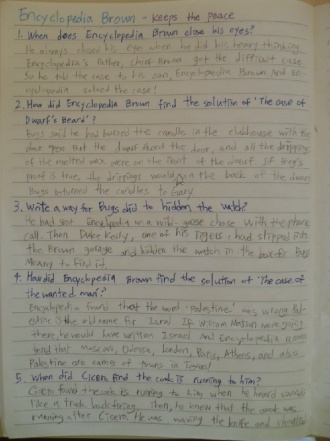 Encyclopedia Brown - keeps the peace
1. When does Encyclopedia Brown close his eyes?
He always closed his eyes when he did his heavy thinking.
Encyclopedia's father, chief Brown got the difficult case.
So he told the case to his son, Encyclopedia Brown and En-
cyclopedia solved the case!
2. How did Encyclopedia Brown find the solution of 'The case of
Dwarf's Beard'?
Bugs said he had burned the candles in the clubhouse with the
door open. But the dwarf faced the door, and all the drippings
of the melted wax were on the front of the dwarf. If Bugs's
proof is true, the drippings would on the back of the dwarf.
Bugs returned the candles to Gary
3. Write a way for Bugs did to hidden the watch?
He had sent Encyclopedia on a wild-goose chase with the phone
call. Then Duke Kelly, one of his Tigers, had slipped into
the Brown garage and hidden the watch in the box for Bugs
Meany to find it.
4. How did Encyclopedia Brown find the solution of 'The case of
the wanted man'?
Encyclopedia found that the word 'Palestine' was wrong. Pal-
estine is the old name for Israel. If William Matson were going
there, he would have written Israel and Encyclopedia
that Moscow, Odessa, London, Paris, Athens, and also
Palestine are names of towns in Texas!
5. When did Cicero find the cook is running to him?
Cicero found the cook is running to him when he heard sounds
like a truck backfiring. Then, he knew that the cook was
running after Cicero. He was waving the knife and